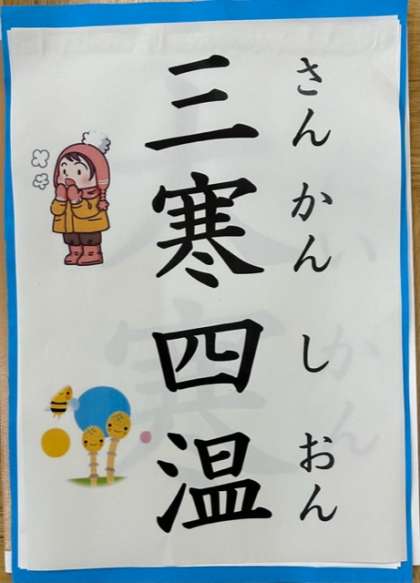 三寒四温
さんかんしおん